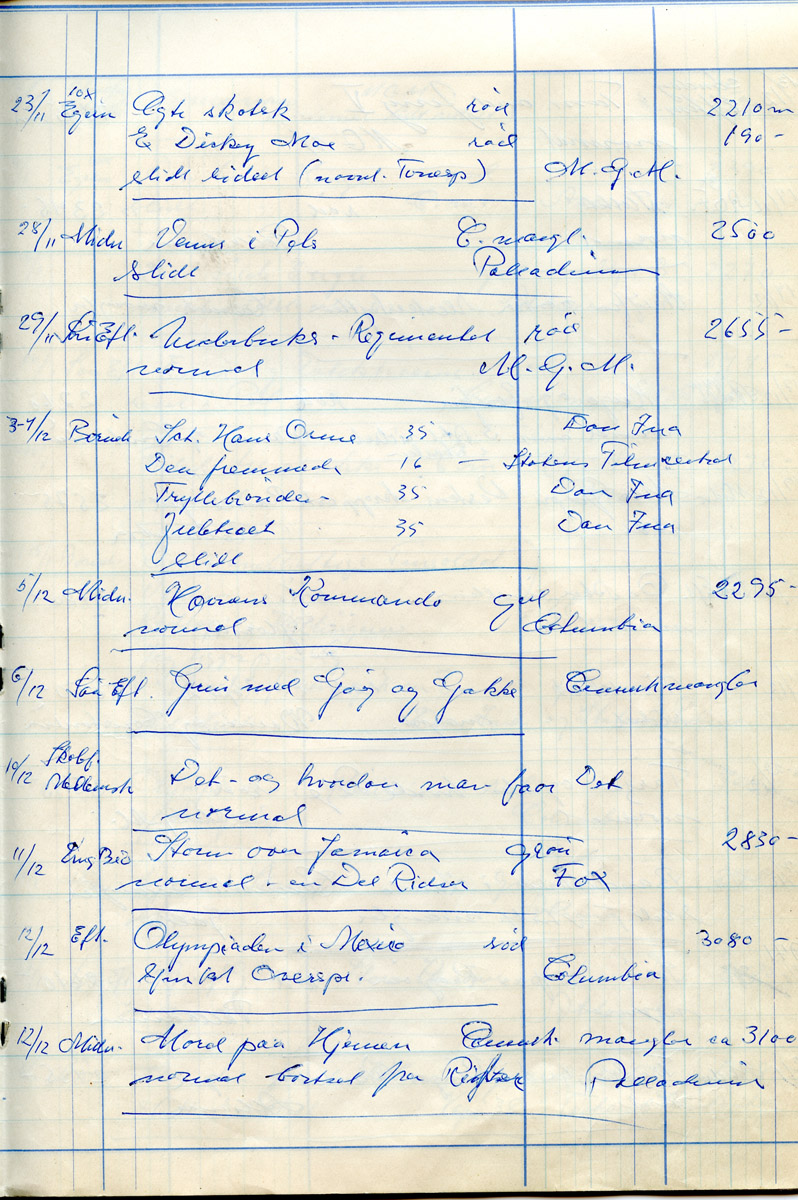 23/11 10x Egein Ægte skotsk röd 2210 m
Ex Dickey Moe röd 190 -
slidt (norml. Tonesp) M.G.M.
28/11 Midn Venus i Pels C. mangl. 2500
Slidt Palladium
29/11 Sön Eft. Underbuks - Regimentet röd 2655 -
normal M.G.M.
3-4/12 Börneh Sct. Hans Orme 35 Dan Ina
Den fremmede 16 - Statens Filmcentral
Tryllebönder - 35 Dan Ina
35 Dan Ina
slidt
5/12 Midn. Hærens Kommando gul 2295 -
normal Columbia
6/12 Sön Eft. Grin med Gög og Gokke Censurk mangler
10/12 Skolef. Mellemsk Det - og hvordan man faar Det
normal
11/12 Ung Bio Storm over Jamaica grön 2830 -
normal - en Del Ridser Fox
12/12 Eft. Olympiaden i Mexico röd 3080 -
Columbia
12/12 Midn. Mord paa Hjernen Censurk. mangler ca 3100
normal bortset fra Ridser Palladium